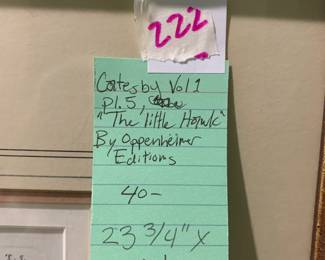 222
Catesby Vol 1
pl. 5,
"The little Hawk"
By Oppenheimer
Editions
40-
23 3/4" x